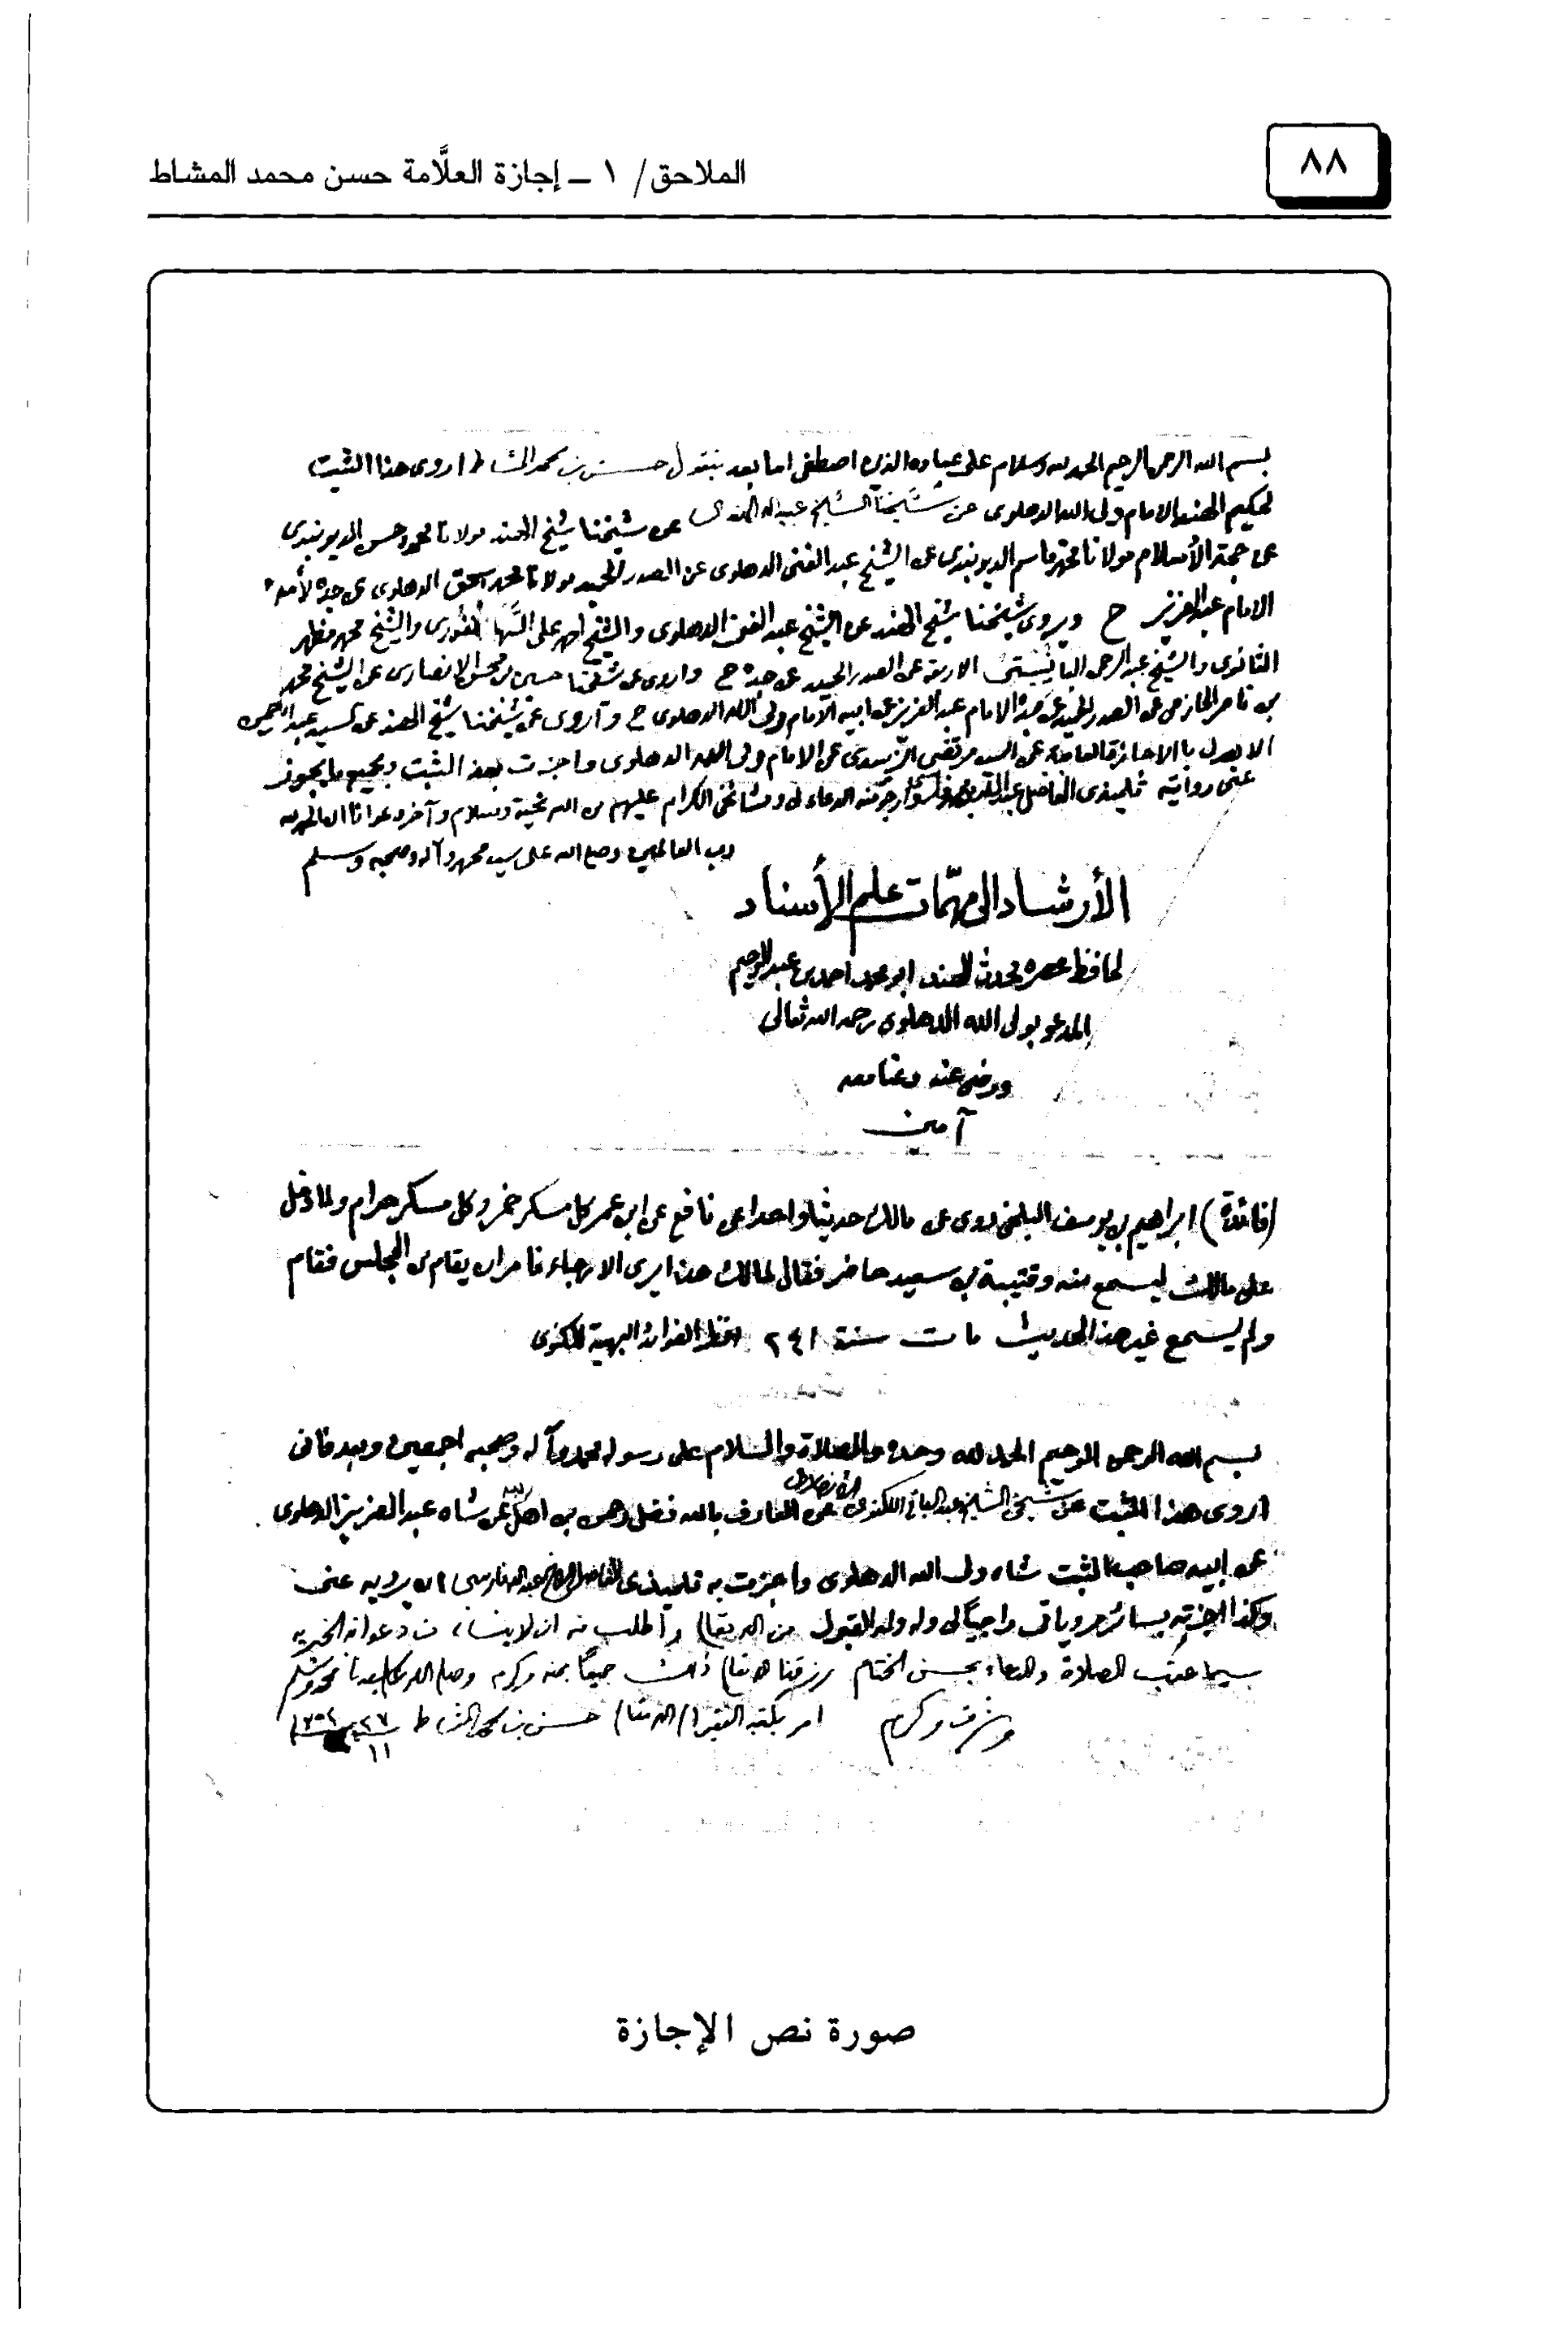 ٨٨
الملاحق/ ١ ــ إجازة العلَّامة حسن محمد المشاط
بسم الله الرحمن الرحيم الحمد لله وسلام على عباده الذين اصطفى اما بعد فيقول حسن بن محمد المشاط اروى هذا الثبت
لحكيم الهند الامام ولى الله الدهلوى عن شيخنا الشيخ عبيد الله عن شيخنا شيخ الهند مولانا محمود حسن الديوبندى
عن حجة الأسلام مولانا محمد قاسم الديوبندى عن الشيخ عبد الغنى الدهلوى عن الصدر الحميد مولانا محمد اسحق الدهلوى عن جده لأمه
الامام عبد العزيز ح ويروى شيخنا شيخ الهند عن الشيخ عبد الغنى الدهلوى والشيخ احمد على السهارنفورى والشيخ محمد مظهر
النانوى والشيخ عبد الرحمن البانيبتى الاربعة عن الصدر الحميد عن جده ح واروى عن شيخنا حسين بن محسن الانصارى عن الشيخ محمد
بن ناصر الحازمى عن الصدر الحميد عن جده الامام عبد العزيز عن ابيه الامام ولى الله الدهلوى ح واروى عن شيخنا شيخ الهند عن السيد عبد الرحمن
الاهدل بالاجازة العامة عن السيد مرتضى الزبيدى عن الامام ولى الله الدهلوى واجزت بهذ الثبت وبجميع ما يجوز
عنى روايته تلميذى الفاضل وارجو منه الدعاء لى ومشائخى الكرام عليهم من الله تحية وسلام وآخر دعوانا ان الحمد لله
رب العالمين وصلى الله على سيدنا محمد وآله وصحبه وسلم
الأرشاد الى مهمّات علم الأسناد
لحافظ عصره محدث الهند احمد بن عبد الرحيم
المدعو بولى الله الدهلوى رحمه الله تعالى
ورضى عنه وعنا معه
آمين
(فائدة) ابراهيم بن يوسف البلخى روى عن مالك حديثا واحدا عن نافع عن ابن عمر كل مسكر خمر وكل مسكر حرام ولما دخل
على مالك ليسمع منه وقتيبة بن سعيد حاضر فقال لمالك هذا يرى الارجاء فامر ان يقام من المجلس فقام
ولم يسمع غير هذا الحديث مات سنة ٢٤١ انظر الفوائد البهية للكنوى
بسم الله الرحمن الرحيم الحمد لله وحده والصلاة والسلام على رسوله محمد وآله وصحبه اجمعين وبعد فانى
اروى هذا الثبت عن شيخى الشيخ عبد الباقى اللكنوى الأنصارى عن العارف بالله فضل رحمن بن اهل الله عن شاه عبد العزيز الدهلوى
عن ابيه صاحب الثبت شاه ولى الله الدهلوى واجزت به تلميذى الفاضل ان يرويه عنى
وكذا اجزته بسائر مروياتى راجيا لى وله القبول من الله تعالى واطلب منه ان لا ينسانى من دعواته الخيرية
سيما عقب الصلاة والدعاء بحسن الختام رزقنا الله تعالى ذلك جميعا بمنه وكرمه وصلى الله على سيدنا محمد وسلم
وشرف وكرم امر بكتبه الفقير الى الله تعالى حسن بن محمد المشاط
صورة نص الإجازة